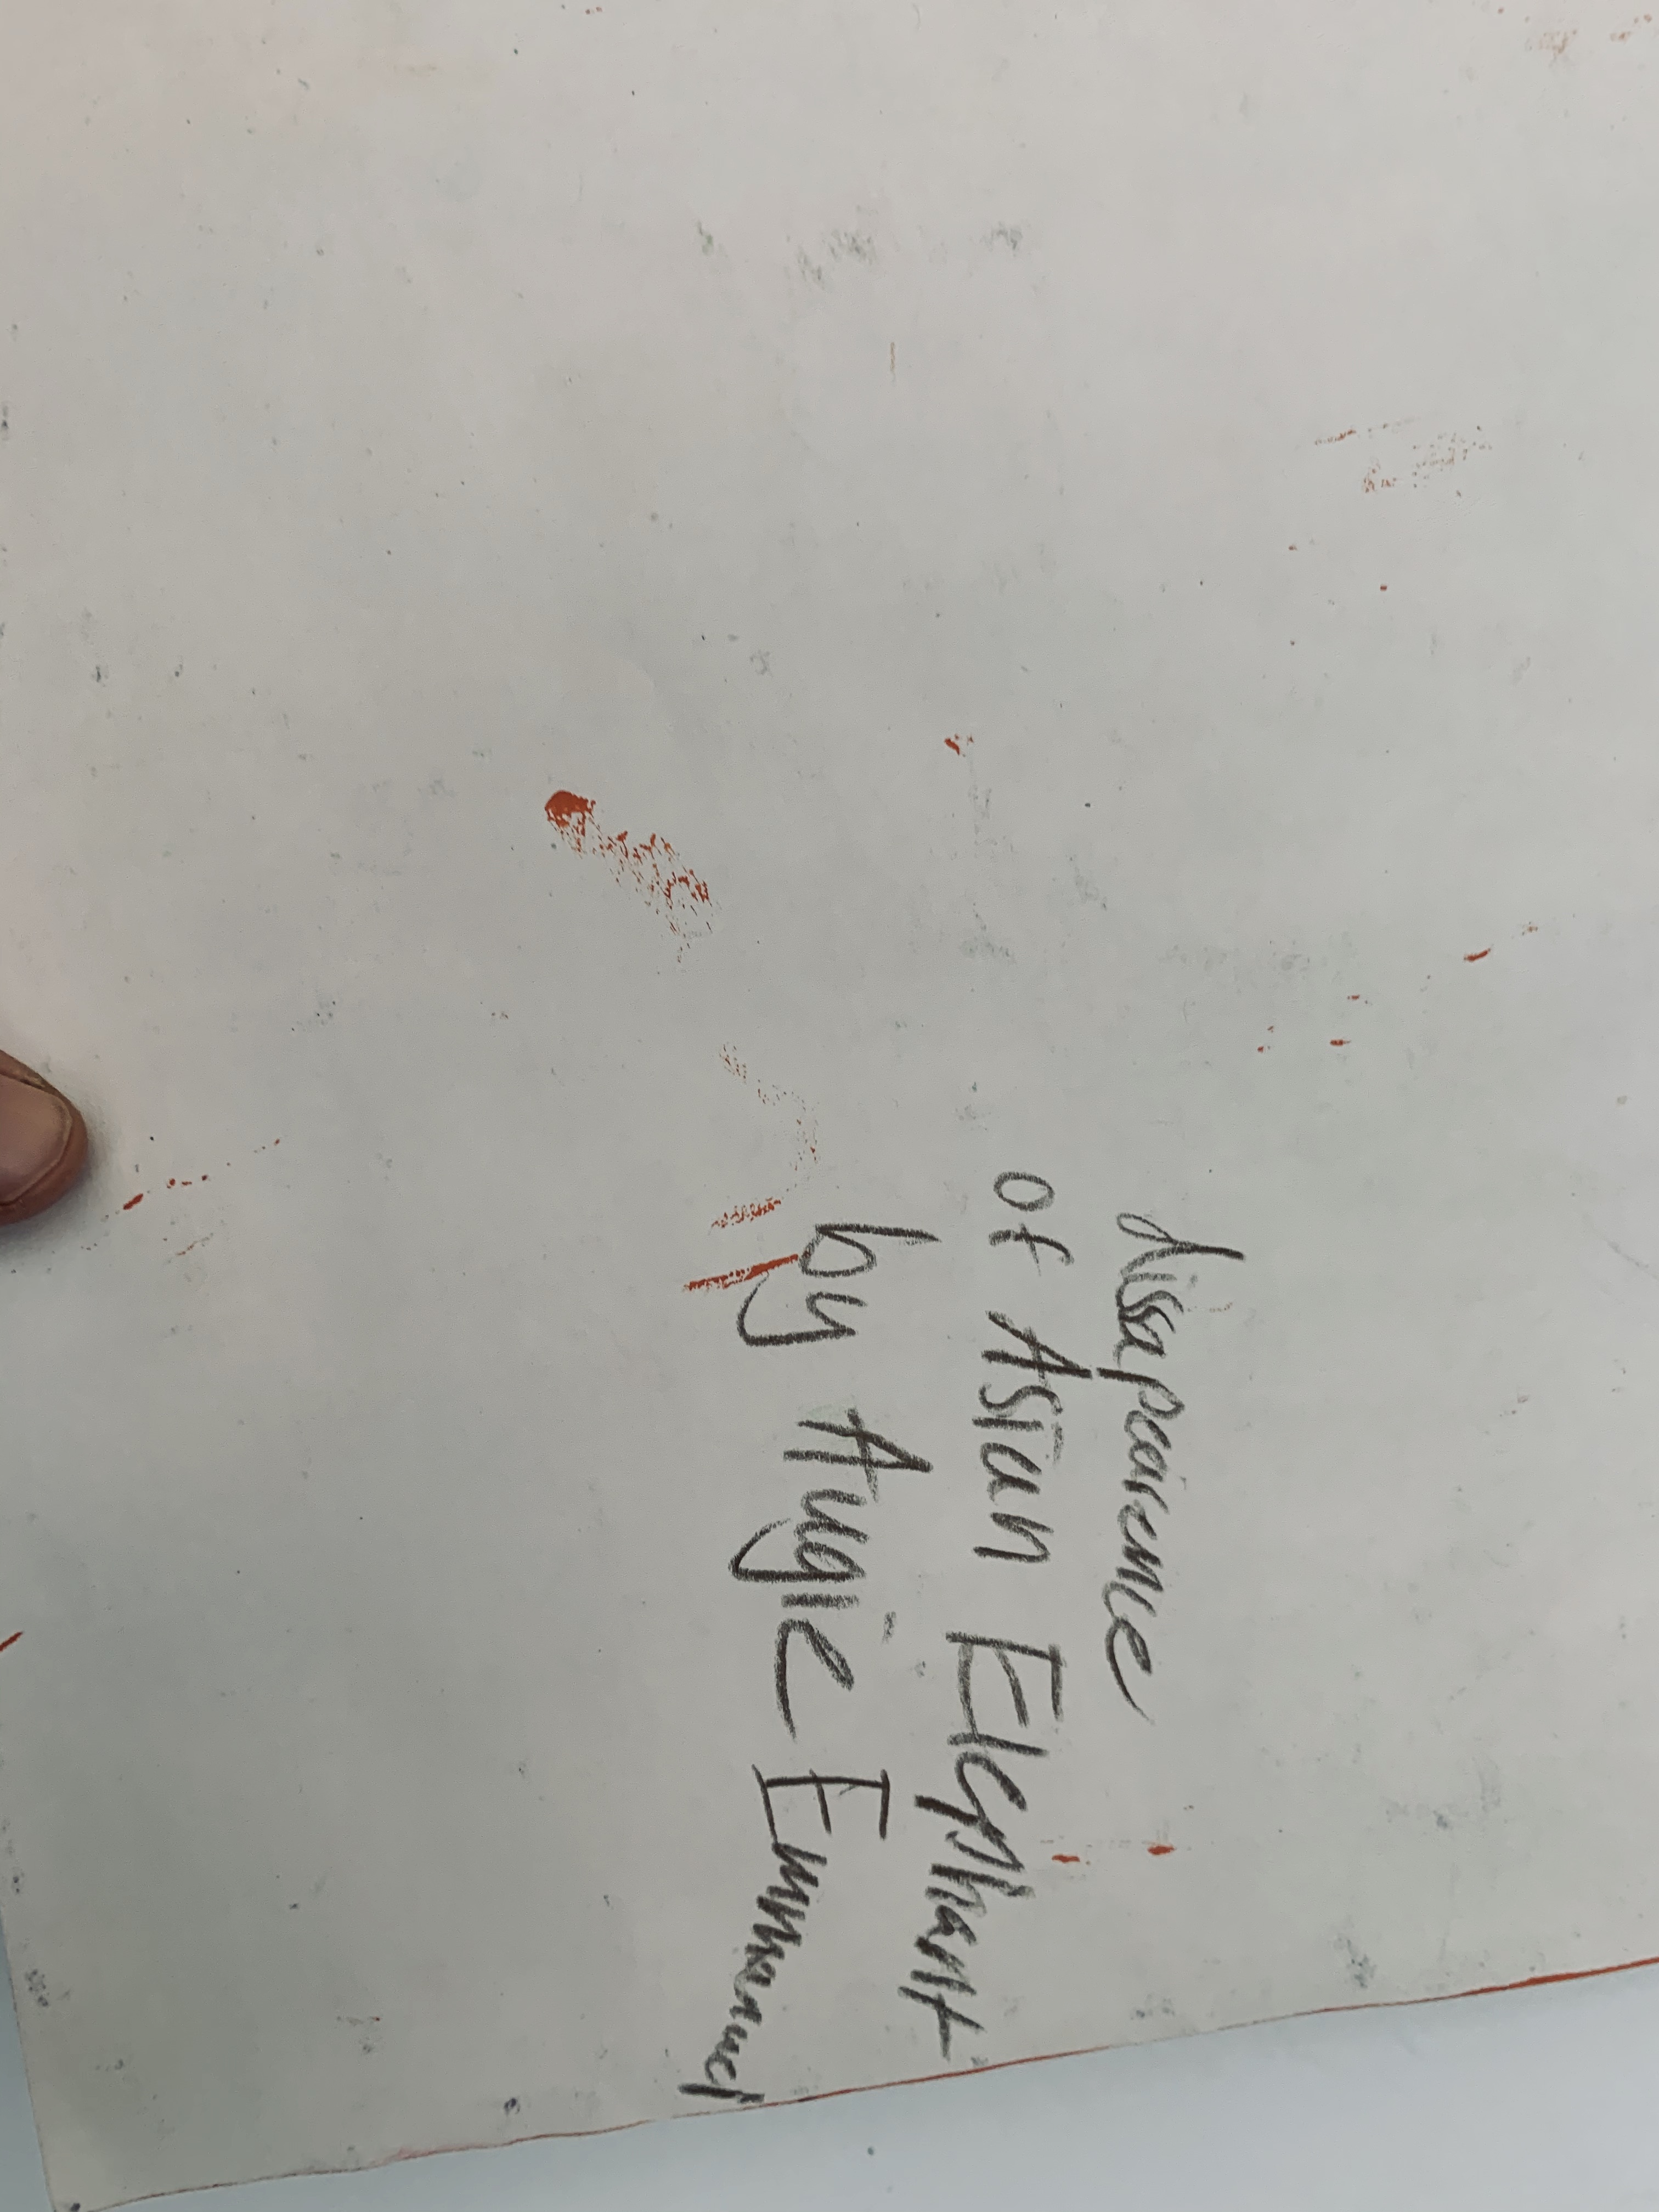 dissapearence
of Asian Elephant
by Augie Emmanuel